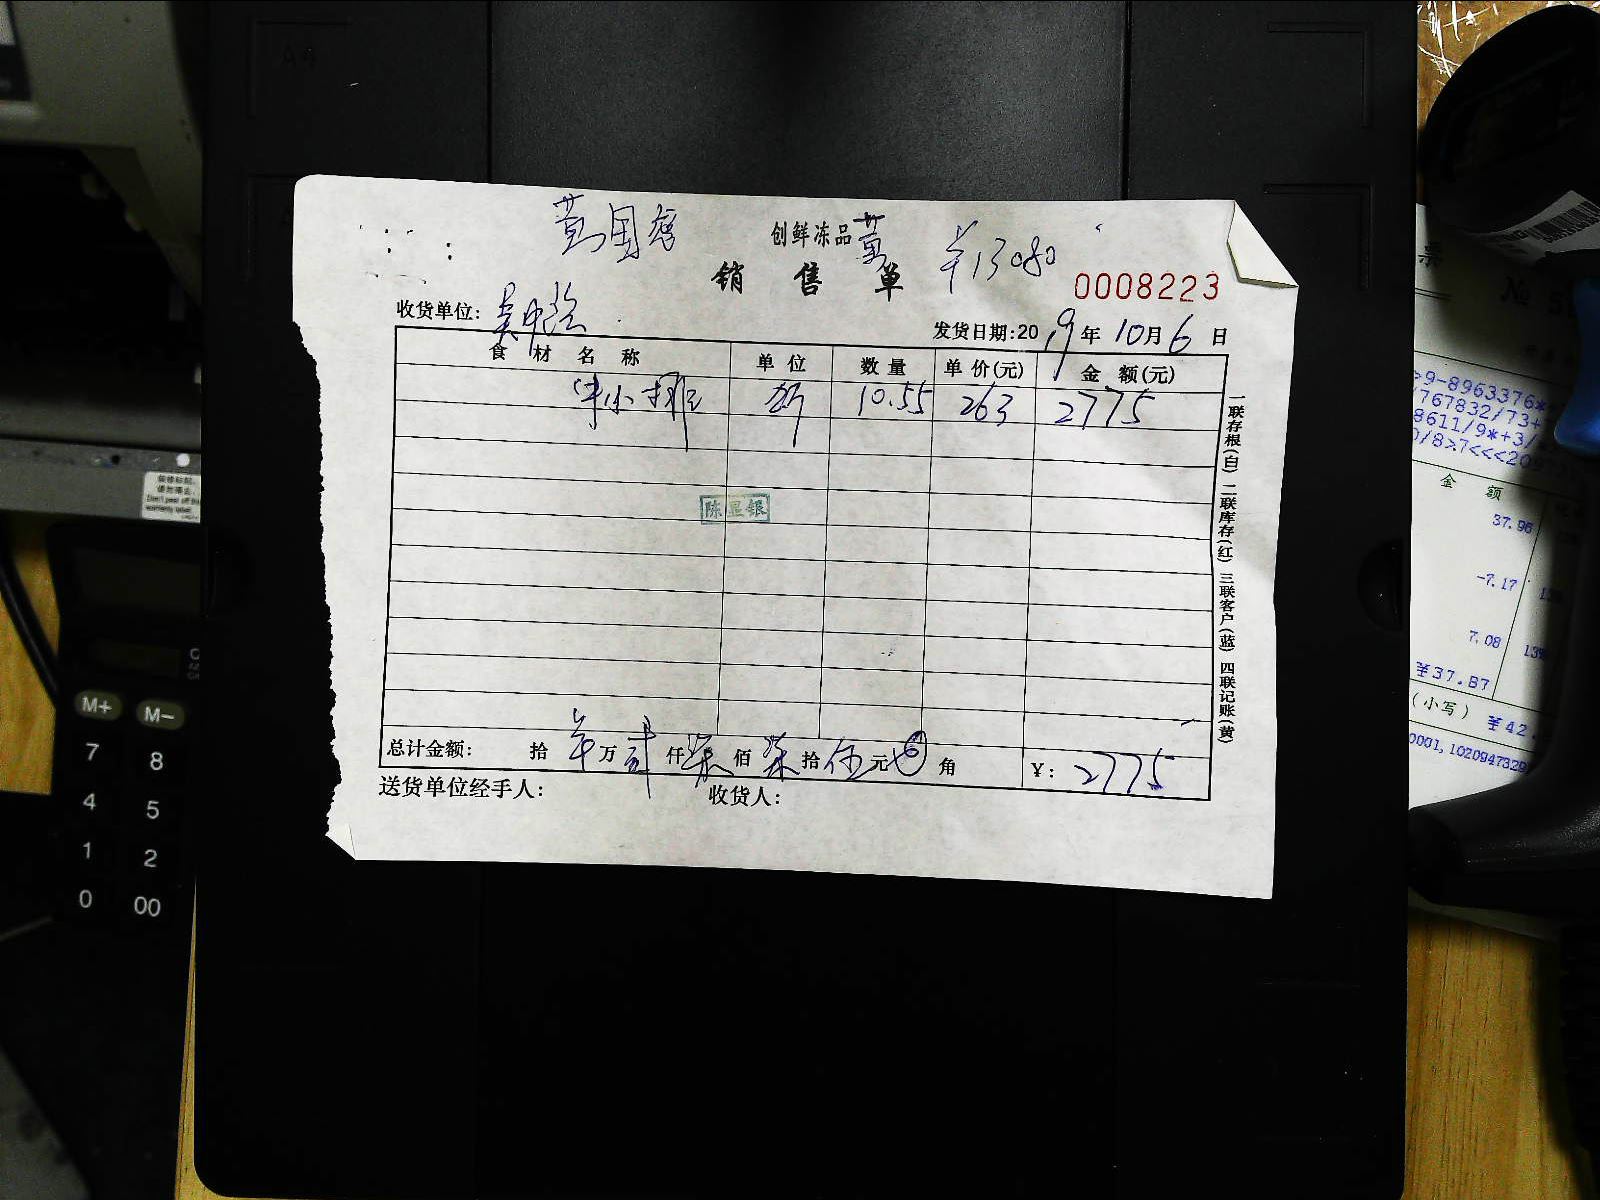 创鲜冻品
¥13080
销售单
0008223
收货单位:
发货日期:2019年10月6日
食材名称 单位 数量 单价(元) 金额(元)
小排 斤 10.55 263 2775
陈显银
总计金额: 拾 万贰仟柒佰柒拾伍元 角 ¥: 2775
送货单位经手人: 收货人:
一联存根(白) 二联库存(红) 三联客户(蓝) 四联记账(黄)
M+ M-
7 8
4 5
1 2
0 00
金额
37.96
-7.17
7.08
¥37.87
(小写) ¥42.